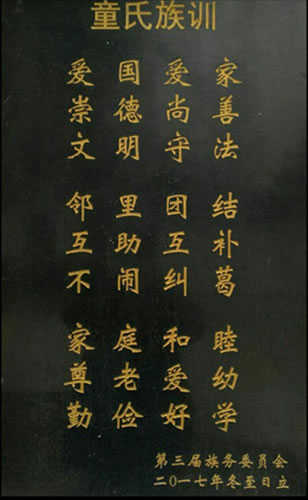 童氏族训
爱国爱家
崇德尚善
文明守法
邻里团结
互助互补
不闹纠葛
家庭和睦
尊老爱幼
勤俭好学
第三届族务委员会
二〇一七年冬至日立